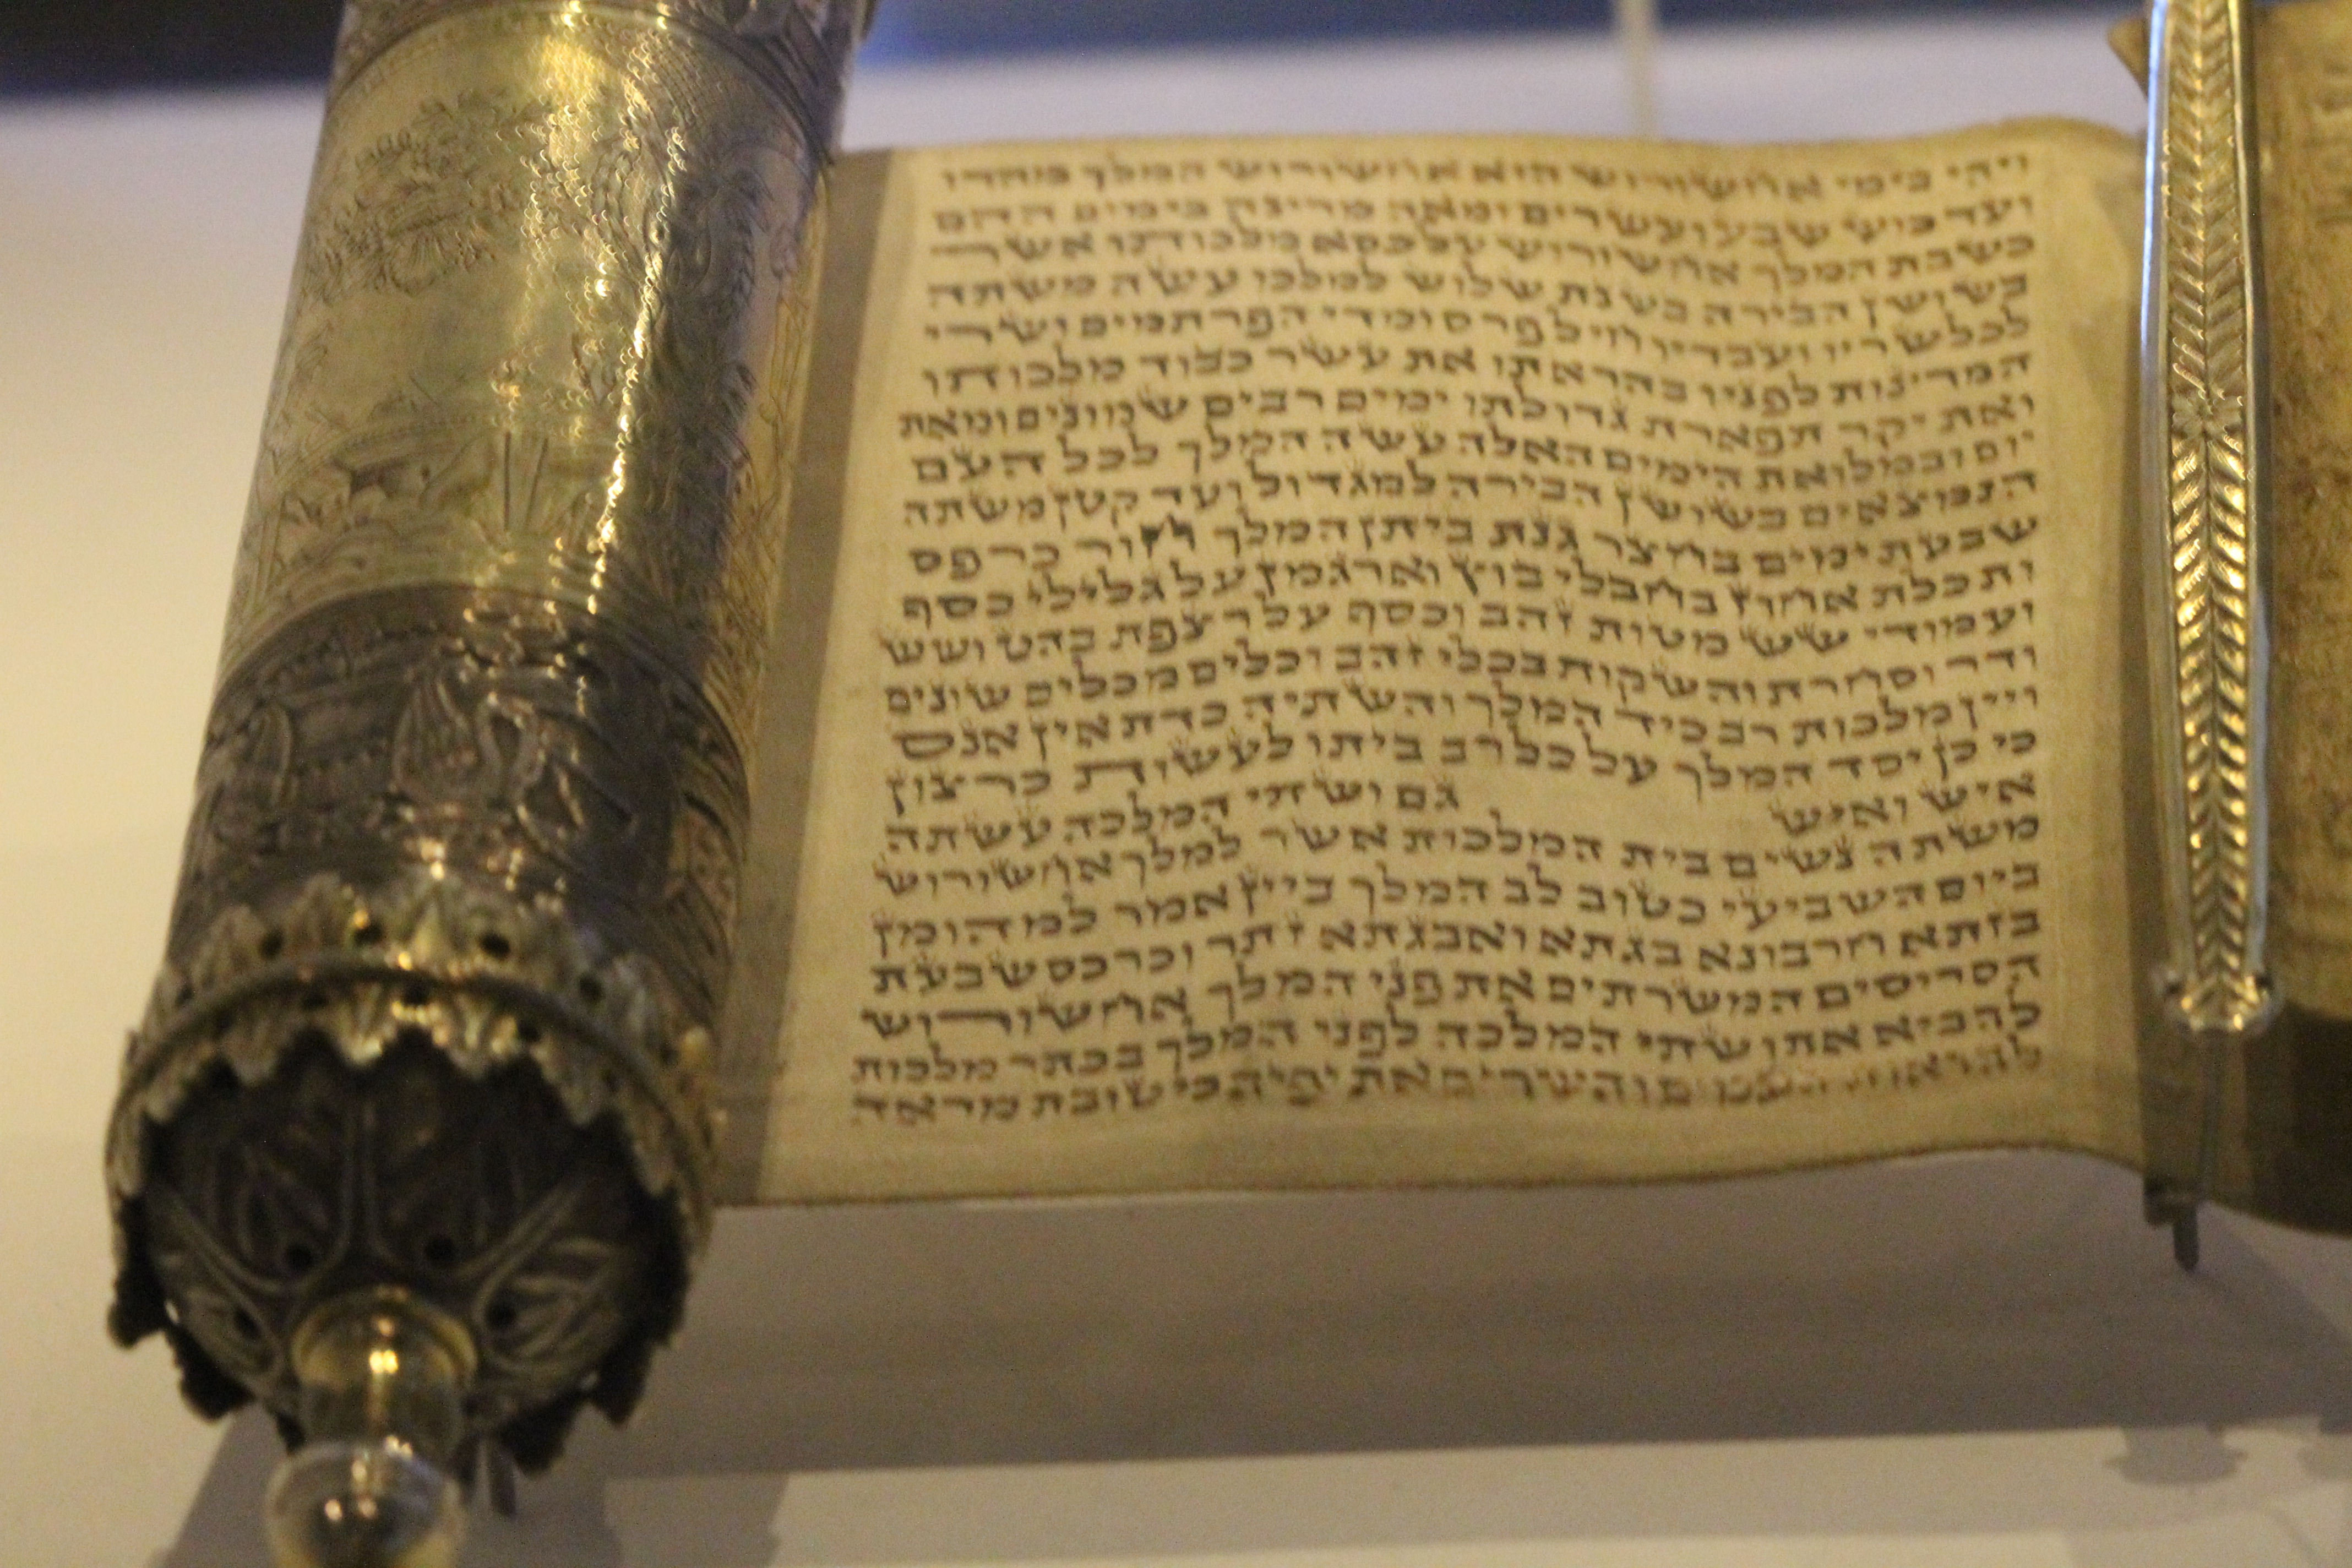 ויהי בימי אחשורוש הוא אחשורוש המלך מהדו
ועד כוש שבע ועשרים ומאה מדינה בימים ההם
כשבת המלך אחשורוש על כסא מלכותו אשר
בשושן הבירה בשנת שלוש למלכו עשה משתה
לכל שריו ועבדיו חיל פרס ומדי הפרתמים ושרי
המדינות לפניו בהראתו את עשר כבוד מלכותו
ואת יקר תפארת גדולתו ימים רבים שמונים ומאת
יום ובמלואת הימים האלה עשה המלך לכל העם
הנמצאים בשושן הבירה למגדול ועד קטן משתה
שבעת ימים בחצר גנת ביתן המלך חור כרפס
ותכלת אחוז בחבלי בוץ וארגמן על גלילי כסף
ועמודי שש מטות זהב וכסף על רצפת בהט ושש
ודר וסחרת והשקות בכלי זהב וכלים מכלים שונים
ויין מלכות רב כיד המלך והשתיה כדת אין אנס
כי כן יסד המלך על כל רב ביתו לעשות כרצון
איש ואיש גם ושתי המלכה עשתה
משתה נשים בית המלכות אשר למלך אחשורוש
ביום השביעי כטוב לב המלך ביין אמר למהומן
בזתא חרבונא בגתא ואבגתא זתר וכרכס שבעת
הסריסים המשרתים את פני המלך אחשורוש
להביא את ושתי המלכה לפני המלך בכתר מלכות
להראות העמים והשרים את יפיה כי טובת מראה